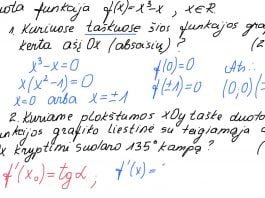 uota funkcija f(x)=x³-x, x∈R
1. Kuriuose taškuose šios funkcijos graf
kerta ašį Ox (abscisių)? (2
x³-x=0 f(0)=0 Ats.:
x(x²-1)=0 f(±1)=0 (0;0)(=
x=0 arba x=±1
2. Kuriame plokštumos xOy taške duoto
unkcijos grafiko liestinė su teigiamąja a
x kryptimi sudaro 135° kampą?
f'(x₀)=tgα; f'(x)=